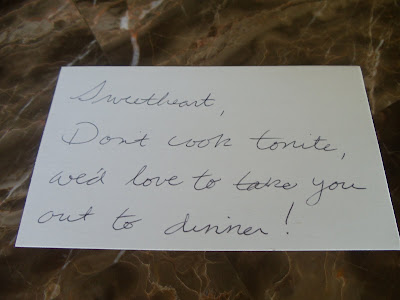 Sweetheart,
Dont cook tonite,
we'd love to take you
out to dinner!